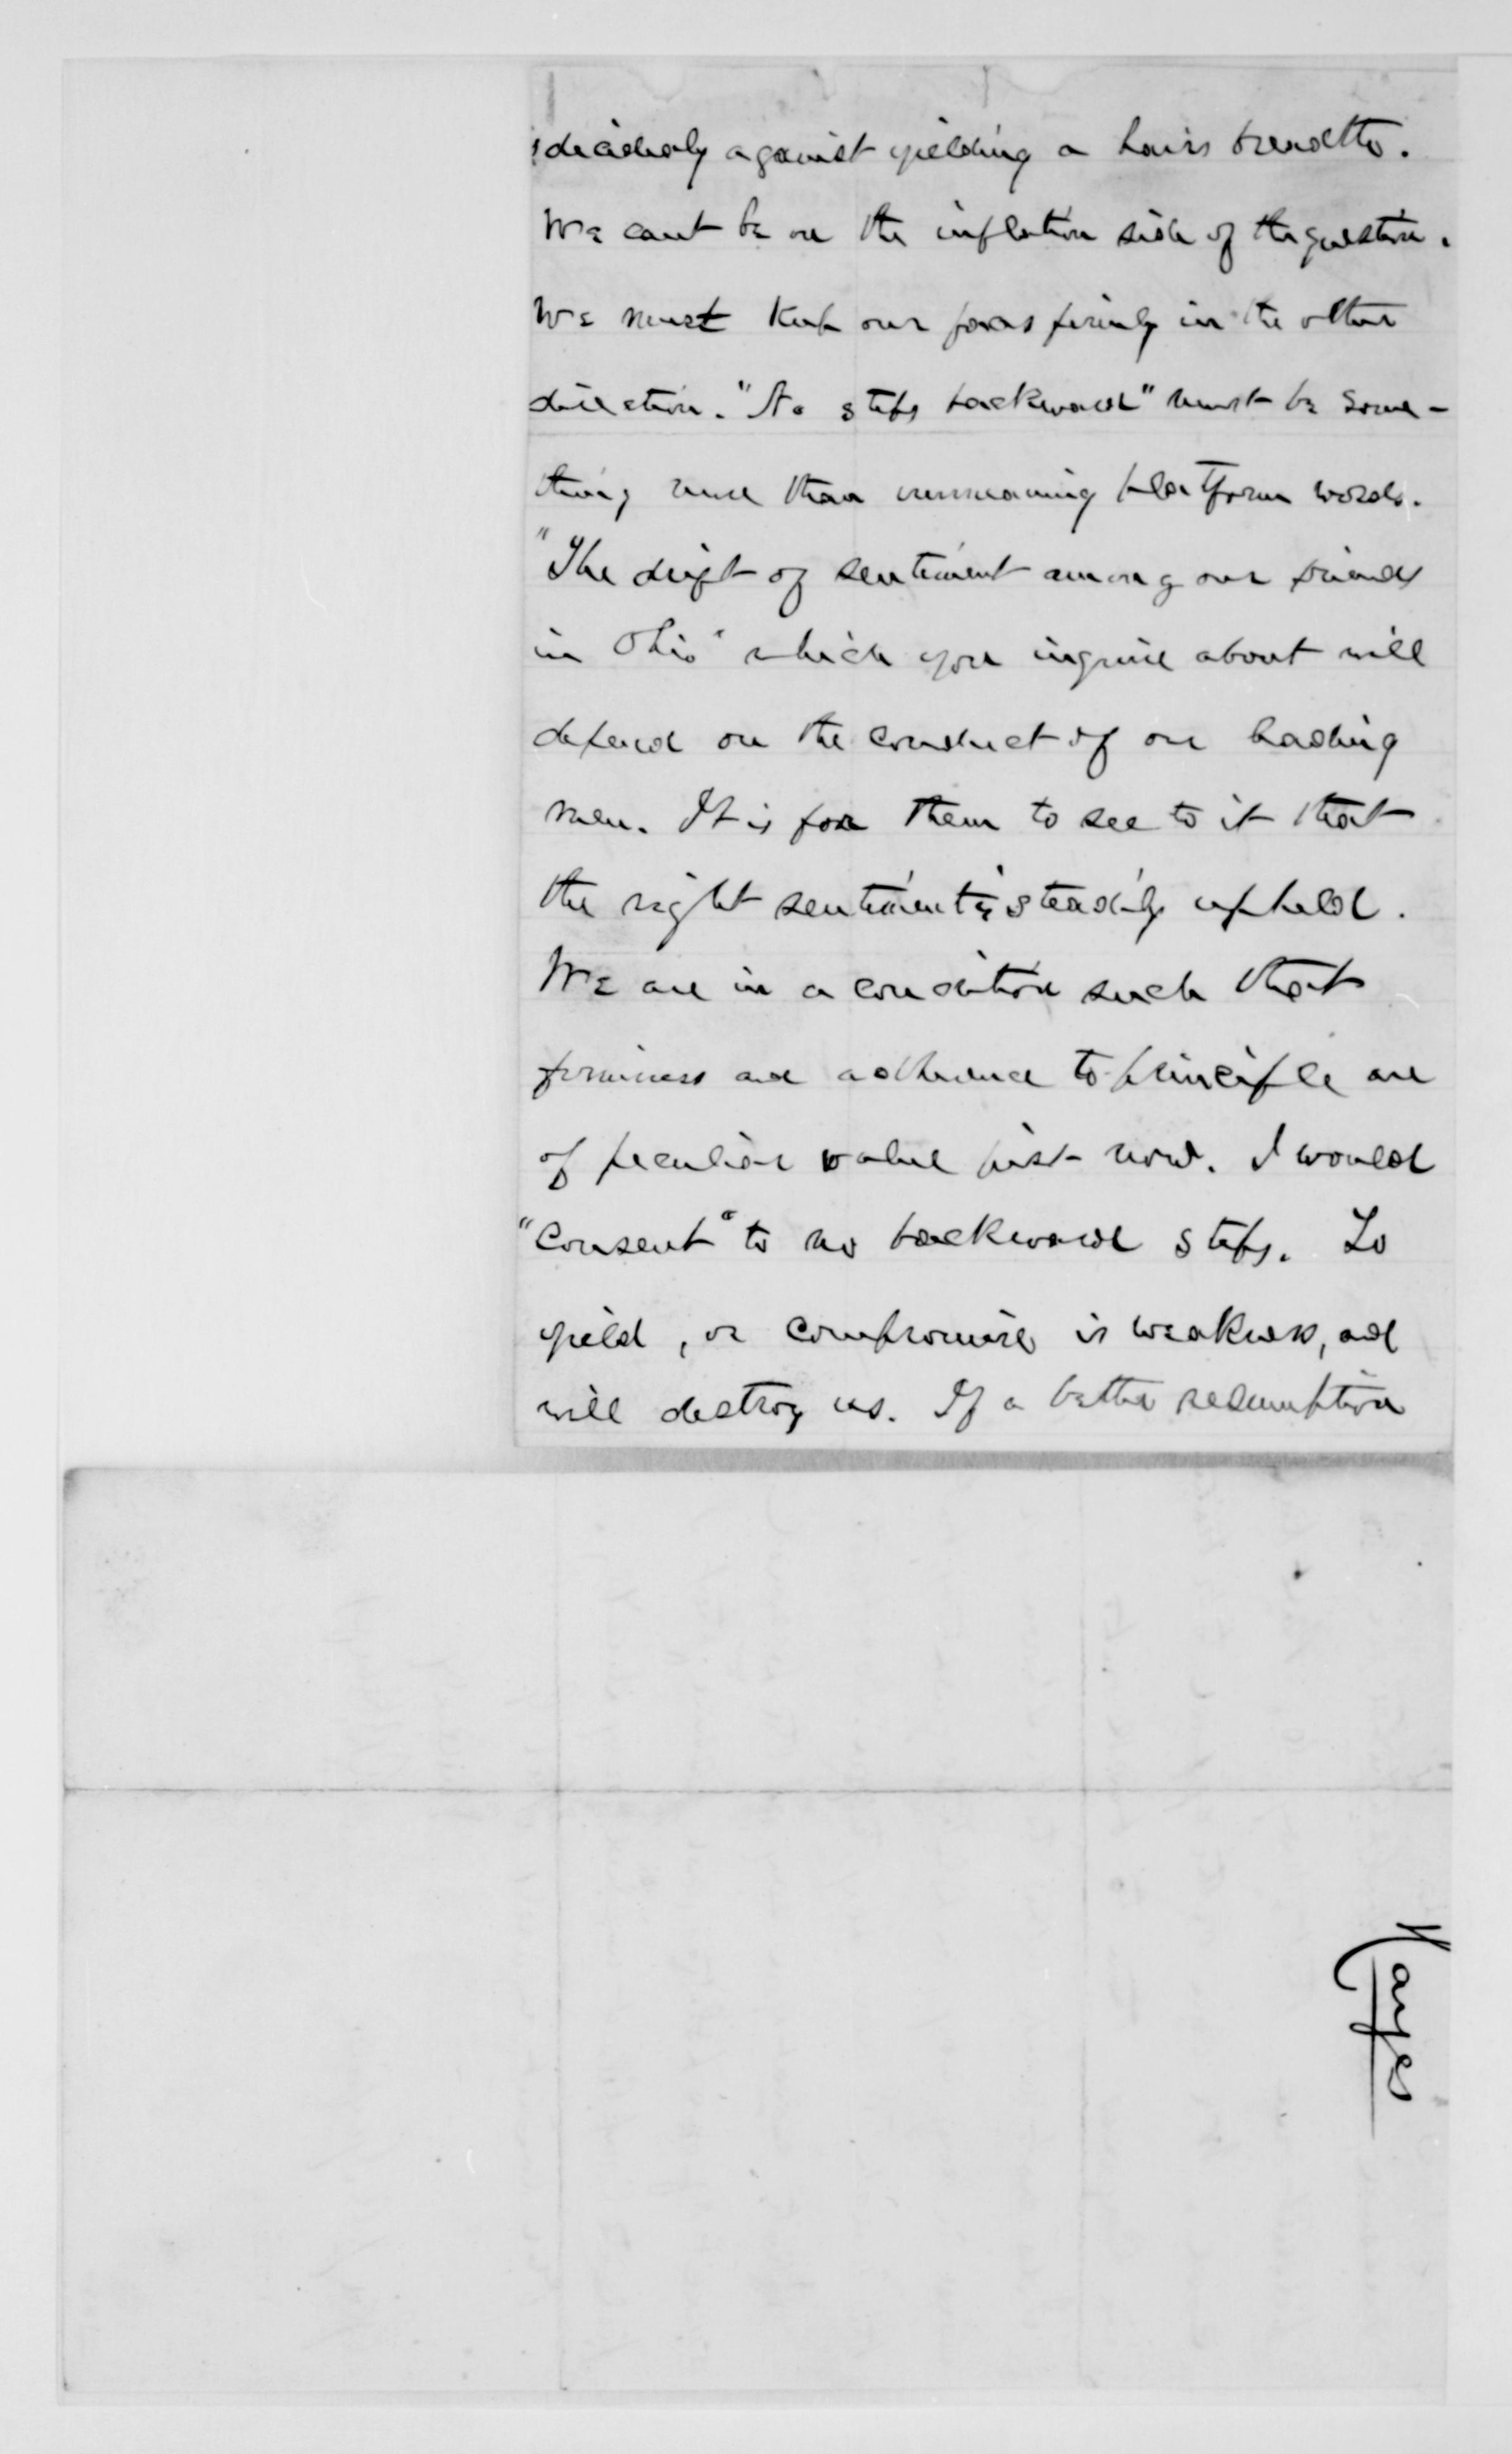 decidedly against yielding a hairs breadth.
We cant be on the inflation side of the question.
We must keep our faces firmly in the other
direction. "No steps backward" must be some-
thing more than unmeaning platform words.
"The drift of sentiment among our friends
in Ohio" which you inquire about will
depend on the conduct of our leading
men. It is for them to see to it that
the right sentiment is steadily upheld.
We are in a condition such that
firmness and adherence to principle are
of peculiar value just now. I would
"consent" to no backward steps. To
yield, or compromise is weakness, and
will destroy us. If a better resumption
Hayes